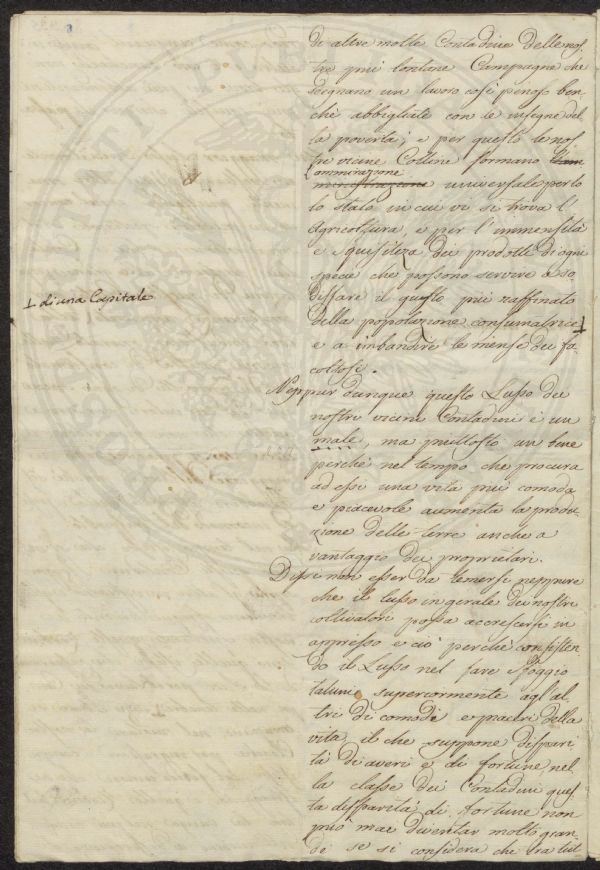 di altre molte Contadine delle nos
tre più lontane Campagne che
sdegnano un lavoro così penoso ben
chè abbigliate con le insegne del
la povertà; e per questo le nos
tre vicine Colline formano
ammirazione
ministrazione universale per lo
lo stato in cui vi si trova l'
Agricoltura, e per l'immensità
e squisitezza dei prodotti di ogni
specie che possono servire a so
disfare il gusto più raffinato
⊥ di una Capitale
della popolazione consumatrice ⊥
e a imbandire le mense dei fa
coltosi.
Neppur dunque questo Lusso dei
nostri vicini Contadini è un
male, ma piuttosto un bene
perchè nel tempo che procura
ad essi una vita più comoda
e piacevole aumenta la produ
zione delle terre anche a
vantaggio dei proprietari.
Dissi non esser da temersi neppure
che il lusso in gerale dei nostri
coltivatori possa accrescersi in
appresso e ciò perchè consisten
do il Lusso nel fare sfoggio
taluni superiormente agl'al
tri di comodi e piaceri della
vita il che suppone dispari
tà di averi e di fortune nel
la classe dei Contadini ques
ta disparità di fortune non
può mai diventar molto gran
de se si considera che tra tut